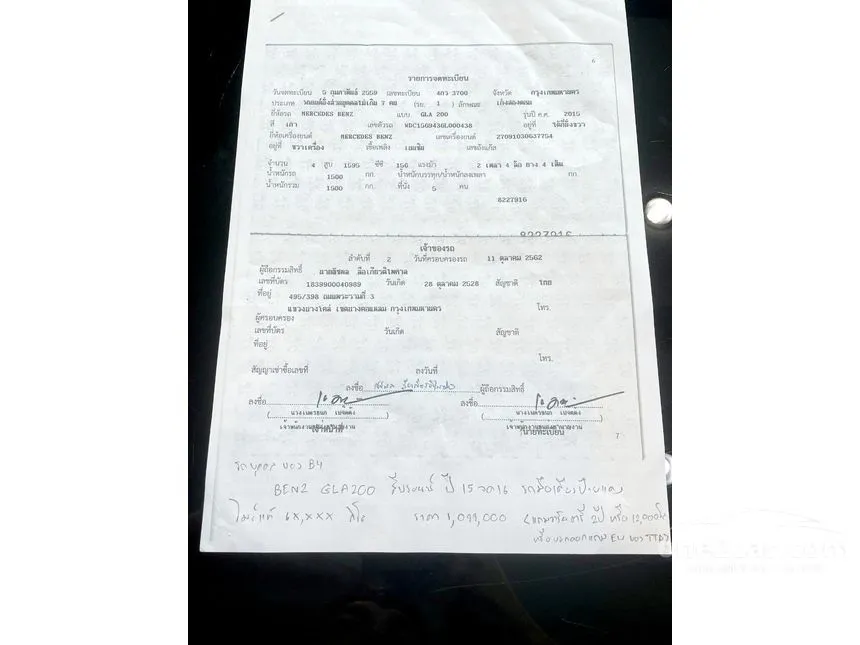 6
รายการจดทะเบียน
วันจดทะเบียน 5 กุมภาพันธ์ 2559 เลขทะเบียน 4กว 3700 จังหวัด กรุงเทพมหานคร
ประเภท รถยนต์นั่งส่วนบุคคลไม่เกิน 7 คน (รย. 1 ) ลักษณะ เก๋งสองตอน
ยี่ห้อรถ MERCEDES BENZ แบบ GLA 200 รุ่นปี ค.ศ. 2015
สี เทา เลขตัวรถ WDC1569436GL000438 อยู่ที่
ยี่ห้อเครื่องยนต์ MERCEDES BENZ เลขเครื่องยนต์ 27091030637754
อยู่ที่ ขวาเครื่อง เชื้อเพลิง เบนซิน เลขถังแก๊ส
จำนวน 4 สูบ 1595 ซีซี 156 แรงม้า 2 เพลา 4 ล้อ ยาง 4 เส้น
น้ำหนักรถ 1500 กก. น้ำหนักบรรทุก/น้ำหนักลงเพลา กก
น้ำหนักรวม 1500 กก. ที่นั่ง 5 คน
8227916
8227916
เจ้าของรถ
ลำดับที่ 2 วันที่ครอบครองรถ 11 ตุลาคม 2562
ผู้ถือกรรมสิทธิ์
เลขที่บัตร 1839900040989 วันเกิด 28 ตุลาคม 2528 สัญชาติ ไทย
ที่อยู่ 495/398 ถนนพระรามที่ 3
แขวงบางโคล่ เขตบางคอแหลม กรุงเทพมหานคร โทร.
ผู้ครอบครอง
เลขที่บัตร วันเกิด สัญชาติ
ที่อยู่
โทร.
สัญญาเช่าซื้อเลขที่ ลงวันที่
ลงชื่อ ผู้ถือกรรมสิทธิ์
ลงชื่อ ลงชื่อ
เจ้าหน้าที่ นายทะเบียน
7
BENZ GLA200 ปี 15 2016
ไมล์แท้ 6x,xxx กิโล ราคา 1,099,000 2 ปี หรือ 12,000